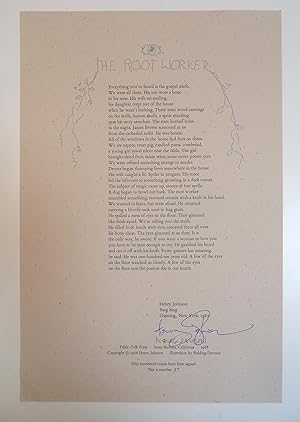 THE ROOT WORKER
Everything you've heard is the gospel truth.
We were all there. His son wore a bone
in his nose. His wife sat smiling,
his daughter crept out of the house
when he wasn't looking. There were wood carvings
on the walls, human skulls, a spear standing
near his navy armchair. The train burned holes
in the night. James Brown screamed at us
from the cathedral radio. He was home,
All of the windows in the house had bars on them.
We ate supper, roast pig, candied yams, cornbread,
a young girl stood silent near the table. The girl
brought dried fruit, raisin wine, some sweet potato part.
We were offered something strange to smoke.
Drums began thumping from somewhere in the house.
His wife caught a fit. Spoke in tongues. His sons
fed the leftovers to something growling in a dark corner.
The subject of magic came up, stories of lost spells.
A dog began to howl out back. The root worker
mumbled something, stormed outside with a knife in his hand.
We wanted to leave, but were afraid. He returned
carrying a bloody sack used to bag grain.
He spilled a mess of eyes to the floor. They gleamed
like fresh squid. We're telling you the truth.
He filled both hands with eyes, smeared them all over
his bony chest. The eyes gleamed at us there. It is
the only way, he swore. If you want a woman to love you
you have to be man enough to cry. He grabbed his beard
and cut it off with his knife. Every gesture has meaning,
he said. He was one-hundred ten years old. A few of the eyes
on the floor watched us closely. A few of the eyes
on the floor saw the passion die in our hearts.
Henry Johnson
Sing Sing
Ossining, New York, 1988
Henry Johnson
FIELDING DAWSON
Public-Folk Press Santa Barbara, California 1988
Copyright © 1988 Henry Johnson Illustration by Fielding Dawson
Fifty numbered copies have been signed
This is number 37